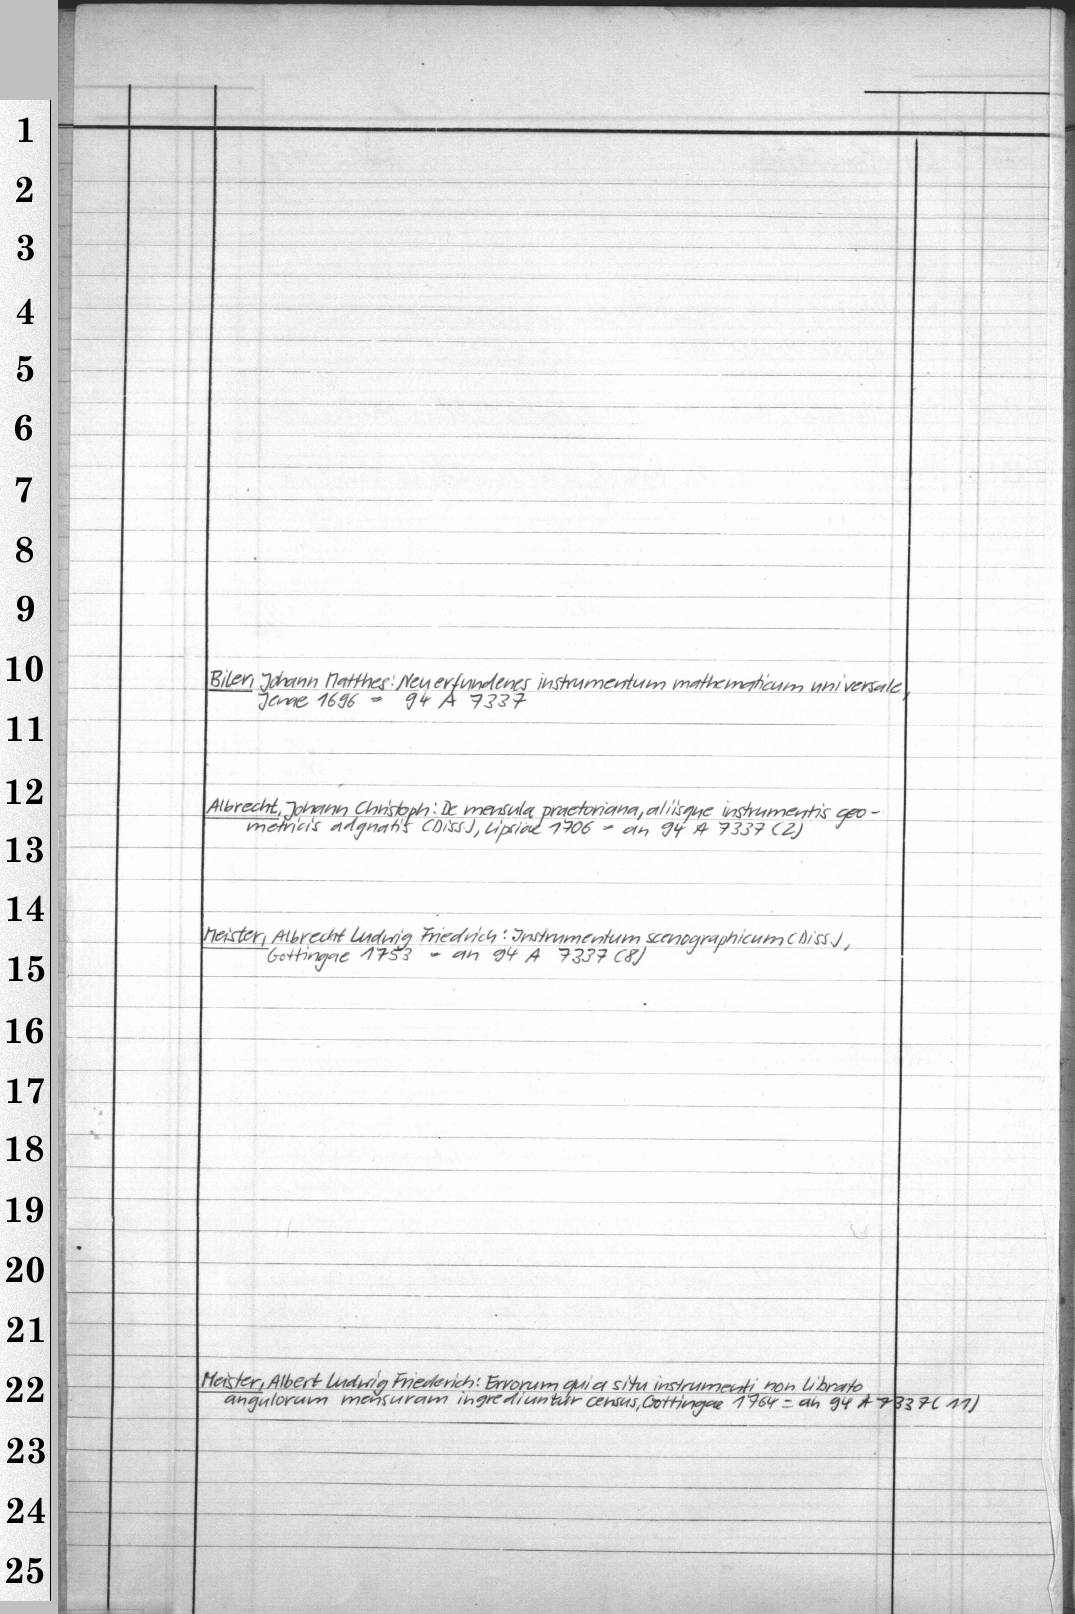 1
2
3
4
5
6
7
8
9
10
Biler, Johann Matthes: Neuerfundenes instrumentum mathematicum universale,
Jenae 1696 = 94 A 7337
11
12
Albrecht, Johann Christoph: De mensula praetoriana, aliisque instrumentis geo-
metricis adgnatis (Diss.), Lipsiae 1706 = an 94 A 7337 (2)
13
14
Meister, Albrecht Ludwig Friedrich: Instrumentum scenographicum (Diss.),
Gottingae 1753 = an 94 A 7337 (8)
15
16
17
18
19
20
21
22
Meister, Albert Ludwig Friederich: Errorum qui a situ instrumenti non librato
angulorum mensuram ingrediuntur census, Gottingae 1764 = an 94 A 7337 (11)
23
24
25